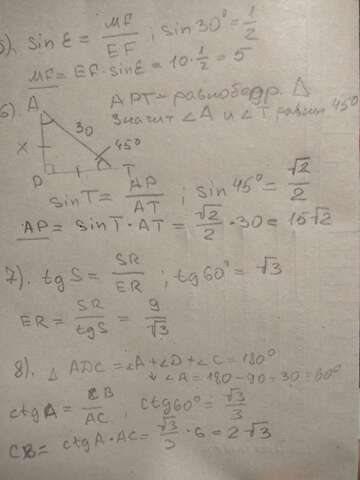 5). sin E = MF/EF ; sin 30° = 1/2
MF = EF · sin E = 10 · 1/2 = 5
6). A
APT - равнобедр. Δ
Значит ∠A и ∠T равны 45°
30
45°
x
P T
sin T = AP/AT ; sin 45° = √2/2
AP = sin T · AT = √2/2 · 30 = 15√2
7). tg S = SR/ER ; tg 60° = √3
ER = SR/tg S = 9/√3
8). Δ ADC = ∠A + ∠D + ∠C = 180°
∠A = 180 - 90 - 30 = 60°
ctg A = CB/AC ; ctg 60° = √3/3
CB = ctg A · AC = √3/3 · 6 = 2√3